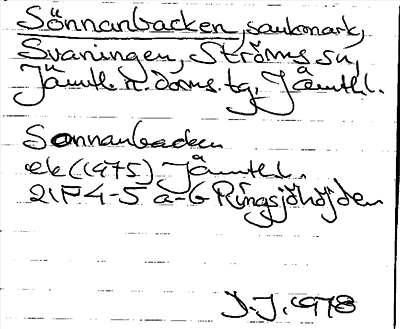 Sönnanbacken, sankmark,
Svaningen, Ströms sn,
Jämtl. n. doms. tg, Jämtl.
Sonnanbacken
ek (1975) Jämtl.
21F 4-5 a-b Ringsjöhöjden
J.J. 1978